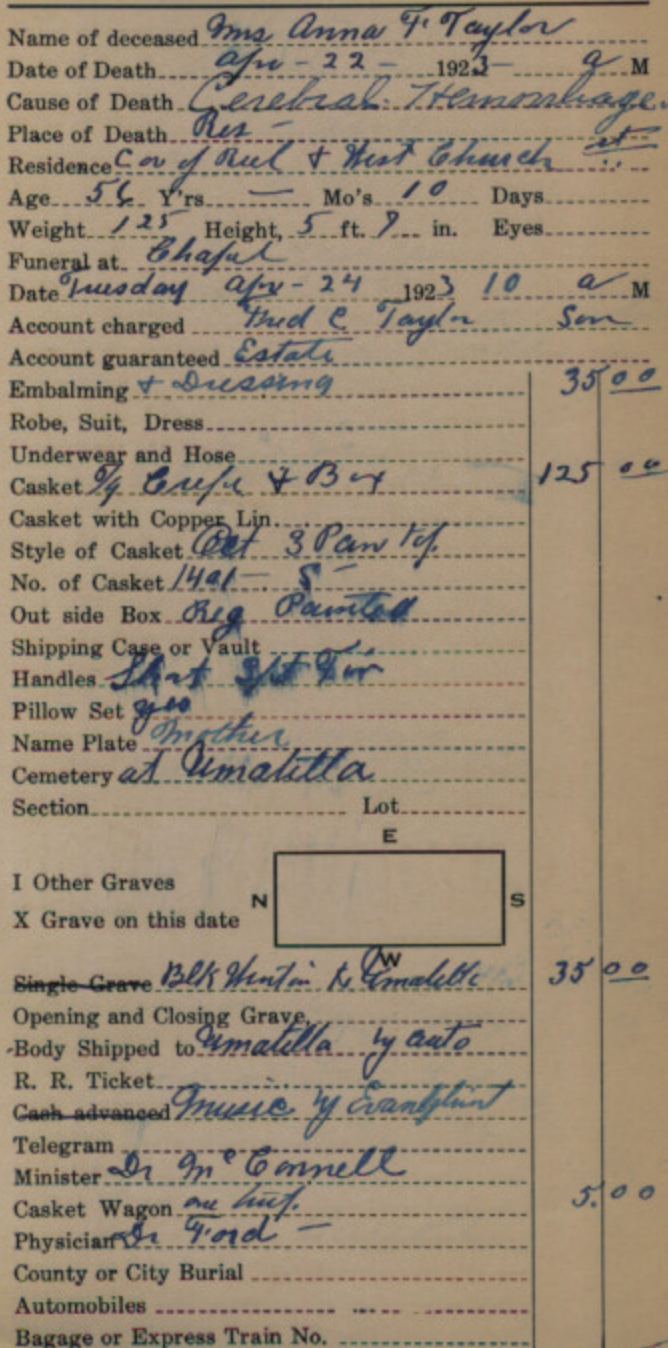 Name of deceased Mrs Anna F. Taylor
Date of Death Apr - 22 - 1923 - a M
Cause of Death Cerebral Hemorrhage.
Place of Death Res -
Residence Cor of & West Church st
Age 56 Y'rs — Mo's 10 Days
Weight 125 Height, 5 ft. 9 in. Eyes
Funeral at Chapel
Date Tuesday Apr - 24 1923 10 a M
Account charged Fred C Taylor Son
Account guaranteed Estate
Embalming + Dressing 35 00
Robe, Suit, Dress
Underwear and Hose
Casket Crepe + Box 125 00
Casket with Copper Lin.
Style of Casket Oct 3 Pan
No. of Casket 1491 - 5 -
Out side Box Reg Painted
Shipping Case or Vault
Handles Short
Pillow Set yes
Name Plate Mother
Cemetery at Umatilla
Section Lot
E
I Other Graves
N S
X Grave on this date
W
Single Grave Blk to Umatilla 35 00
Opening and Closing Grave
Body Shipped to Umatilla by auto
R. R. Ticket
Cash advanced Music by
Telegram
Minister Dr McConnell
Casket Wagon one 5.00
Physician Dr Ford -
County or City Burial
Automobiles
Bagage or Express Train No.